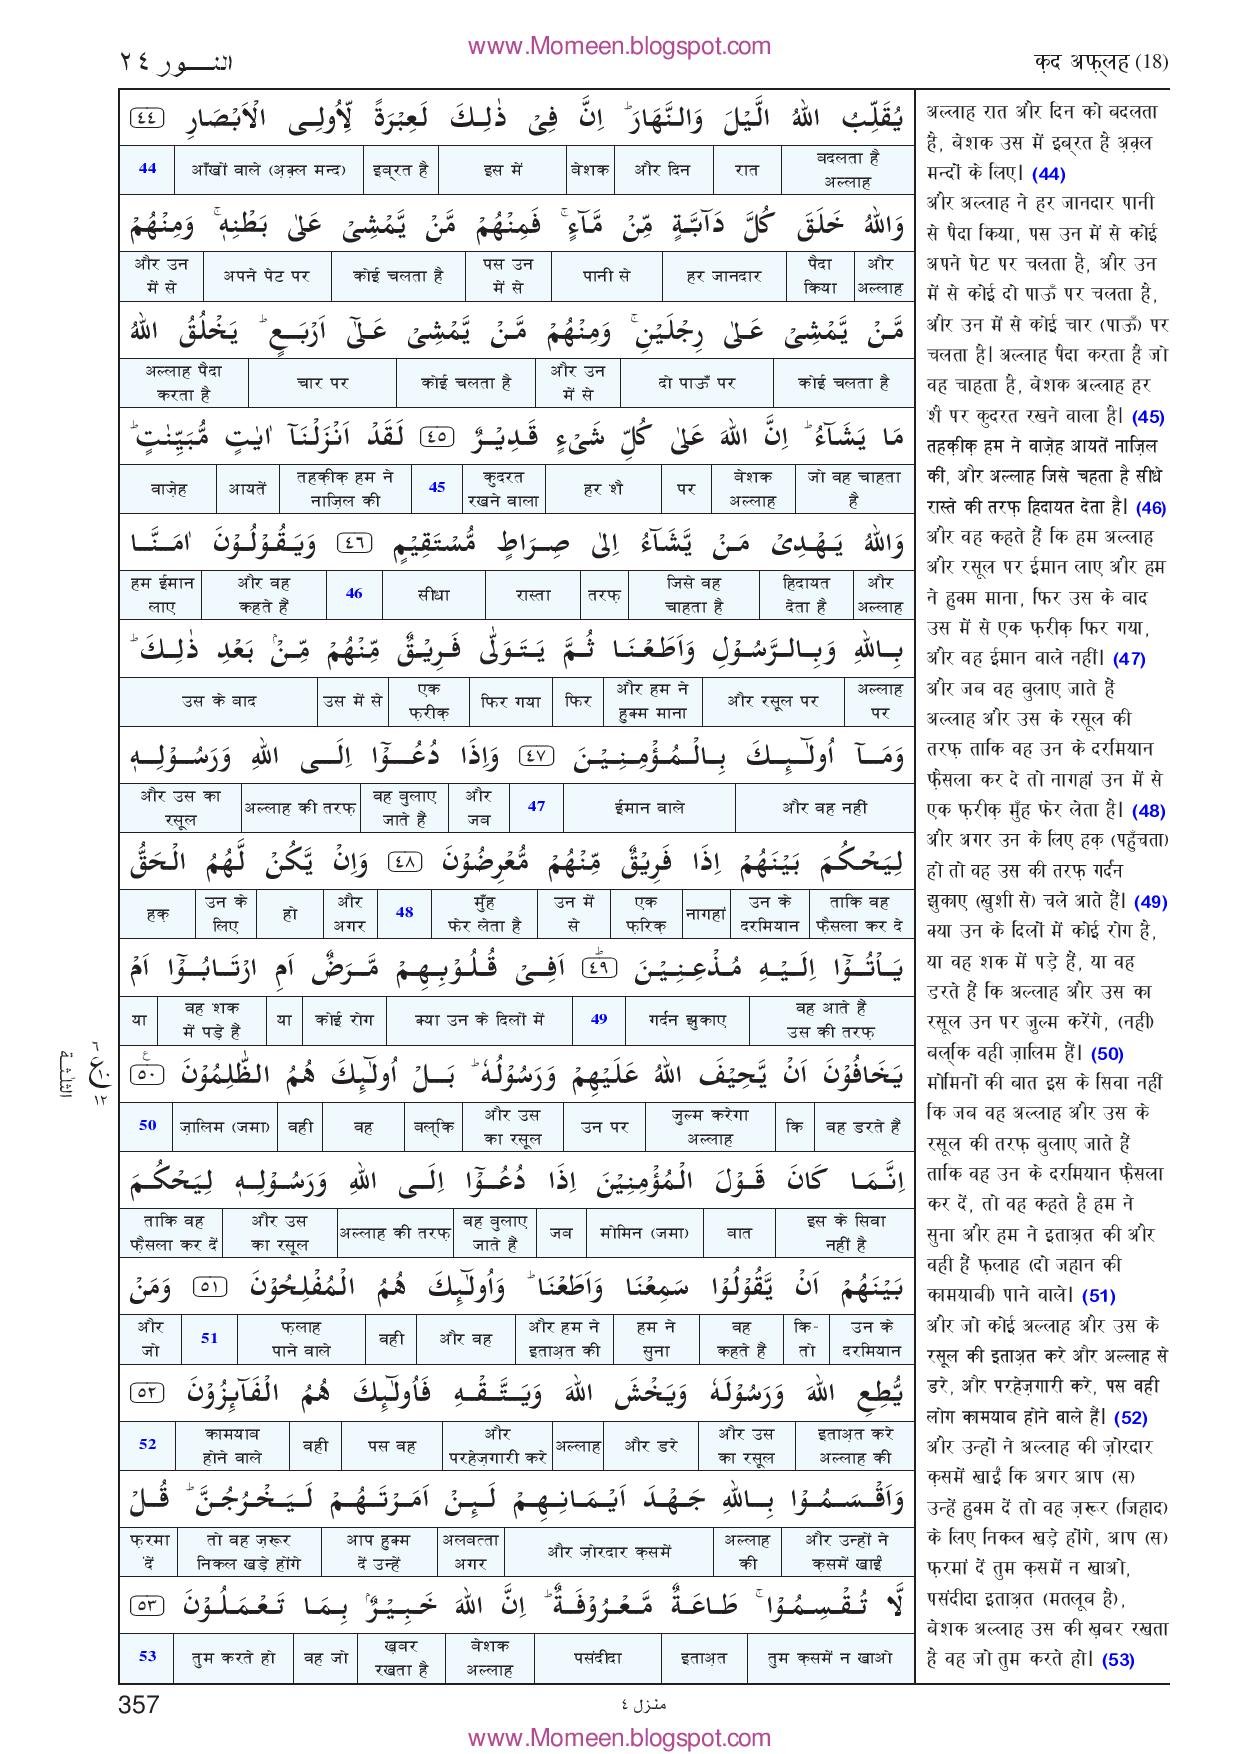 www.Momeen.blogspot.com
النـــور ٢٤
क़द अफ़्लह (18)
يُقَلِّبُ اللهُ الَّيْلَ وَالنَّهَارَ ؕ اِنَّ فِىْ ذٰلِكَ لَعِبْرَةً لِّاُولِى الْاَبْصَارِ ﴿٤٤﴾
बदलता है अल्लाह | रात | और दिन | बेशक | इस में | इब्रत है | आँखों वाले (अ़क़्ल मन्द) | 44
وَاللهُ خَلَقَ كُلَّ دَآبَّةٍ مِّنْ مَّآءٍ ۚ فَمِنْهُمْ مَّنْ يَّمْشِىْ عَلٰى بَطْنِهٖ ۚ وَمِنْهُمْ
और अल्लाह | पैदा किया | हर जानदार | पानी से | पस उन में से | कोई चलता है | अपने पेट पर | और उन में से
مَّنْ يَّمْشِىْ عَلٰى رِجْلَيْنِ ۚ وَمِنْهُمْ مَّنْ يَّمْشِىْ عَلٰٓى اَرْبَعٍ ؕ يَخْلُقُ اللهُ
कोई चलता है | दो पाऊँ पर | और उन में से | कोई चलता है | चार पर | अल्लाह पैदा करता है
مَا يَشَآءُ ؕ اِنَّ اللهَ عَلٰى كُلِّ شَىْءٍ قَدِيْرٌ ﴿٤٥﴾ لَقَدْ اَنْزَلْنَآ اٰيٰتٍ مُّبَيِّنٰتٍ ؕ
जो वह चाहता है | बेशक अल्लाह | पर | हर शै | कुदरत रखने वाला | 45 | तहक़ीक़ हम ने नाज़िल की | आयतें | वाज़ेह
وَاللهُ يَهْدِىْ مَنْ يَّشَآءُ اِلٰى صِرَاطٍ مُّسْتَقِيْمٍ ﴿٤٦﴾ وَيَقُوْلُوْنَ اٰمَنَّا
और अल्लाह | हिदायत देता है | जिसे वह चाहता है | तरफ़ | रास्ता | सीधा | 46 | और वह कहते हैं | हम ईमान लाए
بِاللهِ وَبِالرَّسُوْلِ وَاَطَعْنَا ثُمَّ يَتَوَلّٰى فَرِيْقٌ مِّنْهُمْ مِّنْۢ بَعْدِ ذٰلِكَ ؕ
अल्लाह पर | और रसूल पर | और हम ने हुक्म माना | फिर | फिर गया | एक फ़रीक़ | उस में से | उस के बाद
وَمَآ اُولٰٓئِكَ بِالْمُؤْمِنِيْنَ ﴿٤٧﴾ وَاِذَا دُعُوْٓا اِلَى اللهِ وَرَسُوْلِهٖ
और वह नहीं | ईमान वाले | 47 | और जब | वह बुलाए जाते हैं | अल्लाह की तरफ़ | और उस का रसूल
لِيَحْكُمَ بَيْنَهُمْ اِذَا فَرِيْقٌ مِّنْهُمْ مُّعْرِضُوْنَ ﴿٤٨﴾ وَاِنْ يَّكُنْ لَّهُمُ الْحَقُّ
ताकि वह फ़ैसला कर दे | उन के दरमियान | नागहां | एक फ़रिक़ | उन में से | मुँह फेर लेता है | 48 | और अगर | हो | उन के लिए | हक़
يَاْتُوْٓا اِلَيْهِ مُذْعِنِيْنَ ﴿٤٩﴾ؕ اَفِىْ قُلُوْبِهِمْ مَّرَضٌ اَمِ ارْتَابُوْٓا اَمْ
वह आते हैं उस की तरफ़ | गर्दन झुकाए | 49 | क्या उन के दिलों में | कोई रोग | या | वह शक में पड़े हैं | या
يَخَافُوْنَ اَنْ يَّحِيْفَ اللهُ عَلَيْهِمْ وَرَسُوْلُهٗ ؕ بَلْ اُولٰٓئِكَ هُمُ الظّٰلِمُوْنَ ﴿٥٠﴾
वह डरते हैं | कि | जुल्म करेगा अल्लाह | उन पर | और उस का रसूल | बल्कि | वह | वही | ज़ालिम (जमा) | 50
اِنَّمَا كَانَ قَوْلَ الْمُؤْمِنِيْنَ اِذَا دُعُوْٓا اِلَى اللهِ وَرَسُوْلِهٖ لِيَحْكُمَ
इस के सिवा नहीं है | बात | मोमिन (जमा) | जब | वह बुलाए जाते हैं | अल्लाह की तरफ़ | और उस का रसूल | ताकि वह फ़ैसला कर दें
بَيْنَهُمْ اَنْ يَّقُوْلُوْا سَمِعْنَا وَاَطَعْنَا ؕ وَاُولٰٓئِكَ هُمُ الْمُفْلِحُوْنَ ﴿٥١﴾ وَمَنْ
उन के दरमियान | कि-तो | वह कहते हैं | हम ने सुना | और हम ने इताअ़त की | और वह | वही | फ़लाह पाने वाले | 51 | और जो
يُّطِعِ اللهَ وَرَسُوْلَهٗ وَيَخْشَ اللهَ وَيَتَّقْهِ فَاُولٰٓئِكَ هُمُ الْفَآئِزُوْنَ ﴿٥٢﴾
इताअ़त करे अल्लाह की | और उस का रसूल | और डरे | अल्लाह | और परहेज़गारी करे | पस वह | वही | कामयाब होने वाले | 52
وَاَقْسَمُوْا بِاللهِ جَهْدَ اَيْمَانِهِمْ لَئِنْ اَمَرْتَهُمْ لَيَخْرُجُنَّ ؕ قُلْ
और उन्हों ने क़समें खाईं | अल्लाह की | और ज़ोरदार क़समें | अलबत्ता अगर | आप हुक्म दें उन्हें | तो वह ज़रूर निकल खड़े होंगे | फ़रमा दें
لَّا تُقْسِمُوْا ۚ طَاعَةٌ مَّعْرُوْفَةٌ ؕ اِنَّ اللهَ خَبِيْرٌۢ بِمَا تَعْمَلُوْنَ ﴿٥٣﴾
तुम क़समें न खाओ | इताअ़त | पसंदीदा | बेशक अल्लाह | ख़बर रखता है | वह जो | तुम करते हो | 53
अल्लाह रात और दिन को बदलता
है, बेशक उस में इब्रत है अ़क़्ल
मन्दों के लिए। (44)
और अल्लाह ने हर जानदार पानी
से पैदा किया, पस उन में से कोई
अपने पेट पर चलता है, और उन
में से कोई दो पाऊँ पर चलता है,
और उन में से कोई चार (पाऊँ) पर
चलता है। अल्लाह पैदा करता है जो
वह चाहता है, बेशक अल्लाह हर
शै पर कुदरत रखने वाला है। (45)
तहक़ीक़ हम ने वाज़ेह आयतें नाज़िल
कीं, और अल्लाह जिसे चहता है सीधे
रास्ते की तरफ़ हिदायत देता है। (46)
और वह कहते हैं कि हम अल्लाह
और रसूल पर ईमान लाए और हम
ने हुक्म माना, फिर उस के बाद
उस में से एक फ़रीक़ फिर गया,
और वह ईमान वाले नहीं। (47)
और जब वह बुलाए जाते हैं
अल्लाह और उस के रसूल की
तरफ़ ताकि वह उन के दरमियान
फ़ैसला कर दे तो नागहां उन में से
एक फ़रीक़ मुँह फेर लेता है। (48)
और अगर उन के लिए हक़ (पहुँचता)
हो तो वह उस की तरफ़ गर्दन
झुकाए (खुशी से) चले आते हैं। (49)
क्या उन के दिलों में कोई रोग है,
या वह शक में पड़े हैं, या वह
डरते हैं कि अल्लाह और उस का
रसूल उन पर जुल्म करेंगे, (नहीं)
बल्कि वही ज़ालिम हैं। (50)
मोमिनों की बात इस के सिवा नहीं
कि जब वह अल्लाह और उस के
रसूल की तरफ़ बुलाए जाते हैं
ताकि वह उन के दरमियान फ़ैसला
कर दें, तो वह कहते है हम ने
सुना और हम ने इताअ़त की और
वही हैं फ़लाह (दो जहान की
कामयाबी) पाने वाले। (51)
और जो कोई अल्लाह और उस के
रसूल की इताअ़त करे और अल्लाह से
डरे, और परहेज़गारी करे, पस वही
लोग कामयाब होने वाले हैं। (52)
और उन्हों ने अल्लाह की ज़ोरदार
क़समें खाईं कि अगर आप (स)
उन्हें हुक्म दें तो वह ज़रूर (जिहाद)
के लिए निकल खड़े होंगे, आप (स)
फ़रमां दें तुम क़समें न खाओ,
पसंदीदा इताअ़त (मतलूब है),
बेशक अल्लाह उस की ख़बर रखता
है वह जो तुम करते हो। (53)
٦
ع ١٠
١٢
الثلثة
357
منزل ٤
www.Momeen.blogspot.com